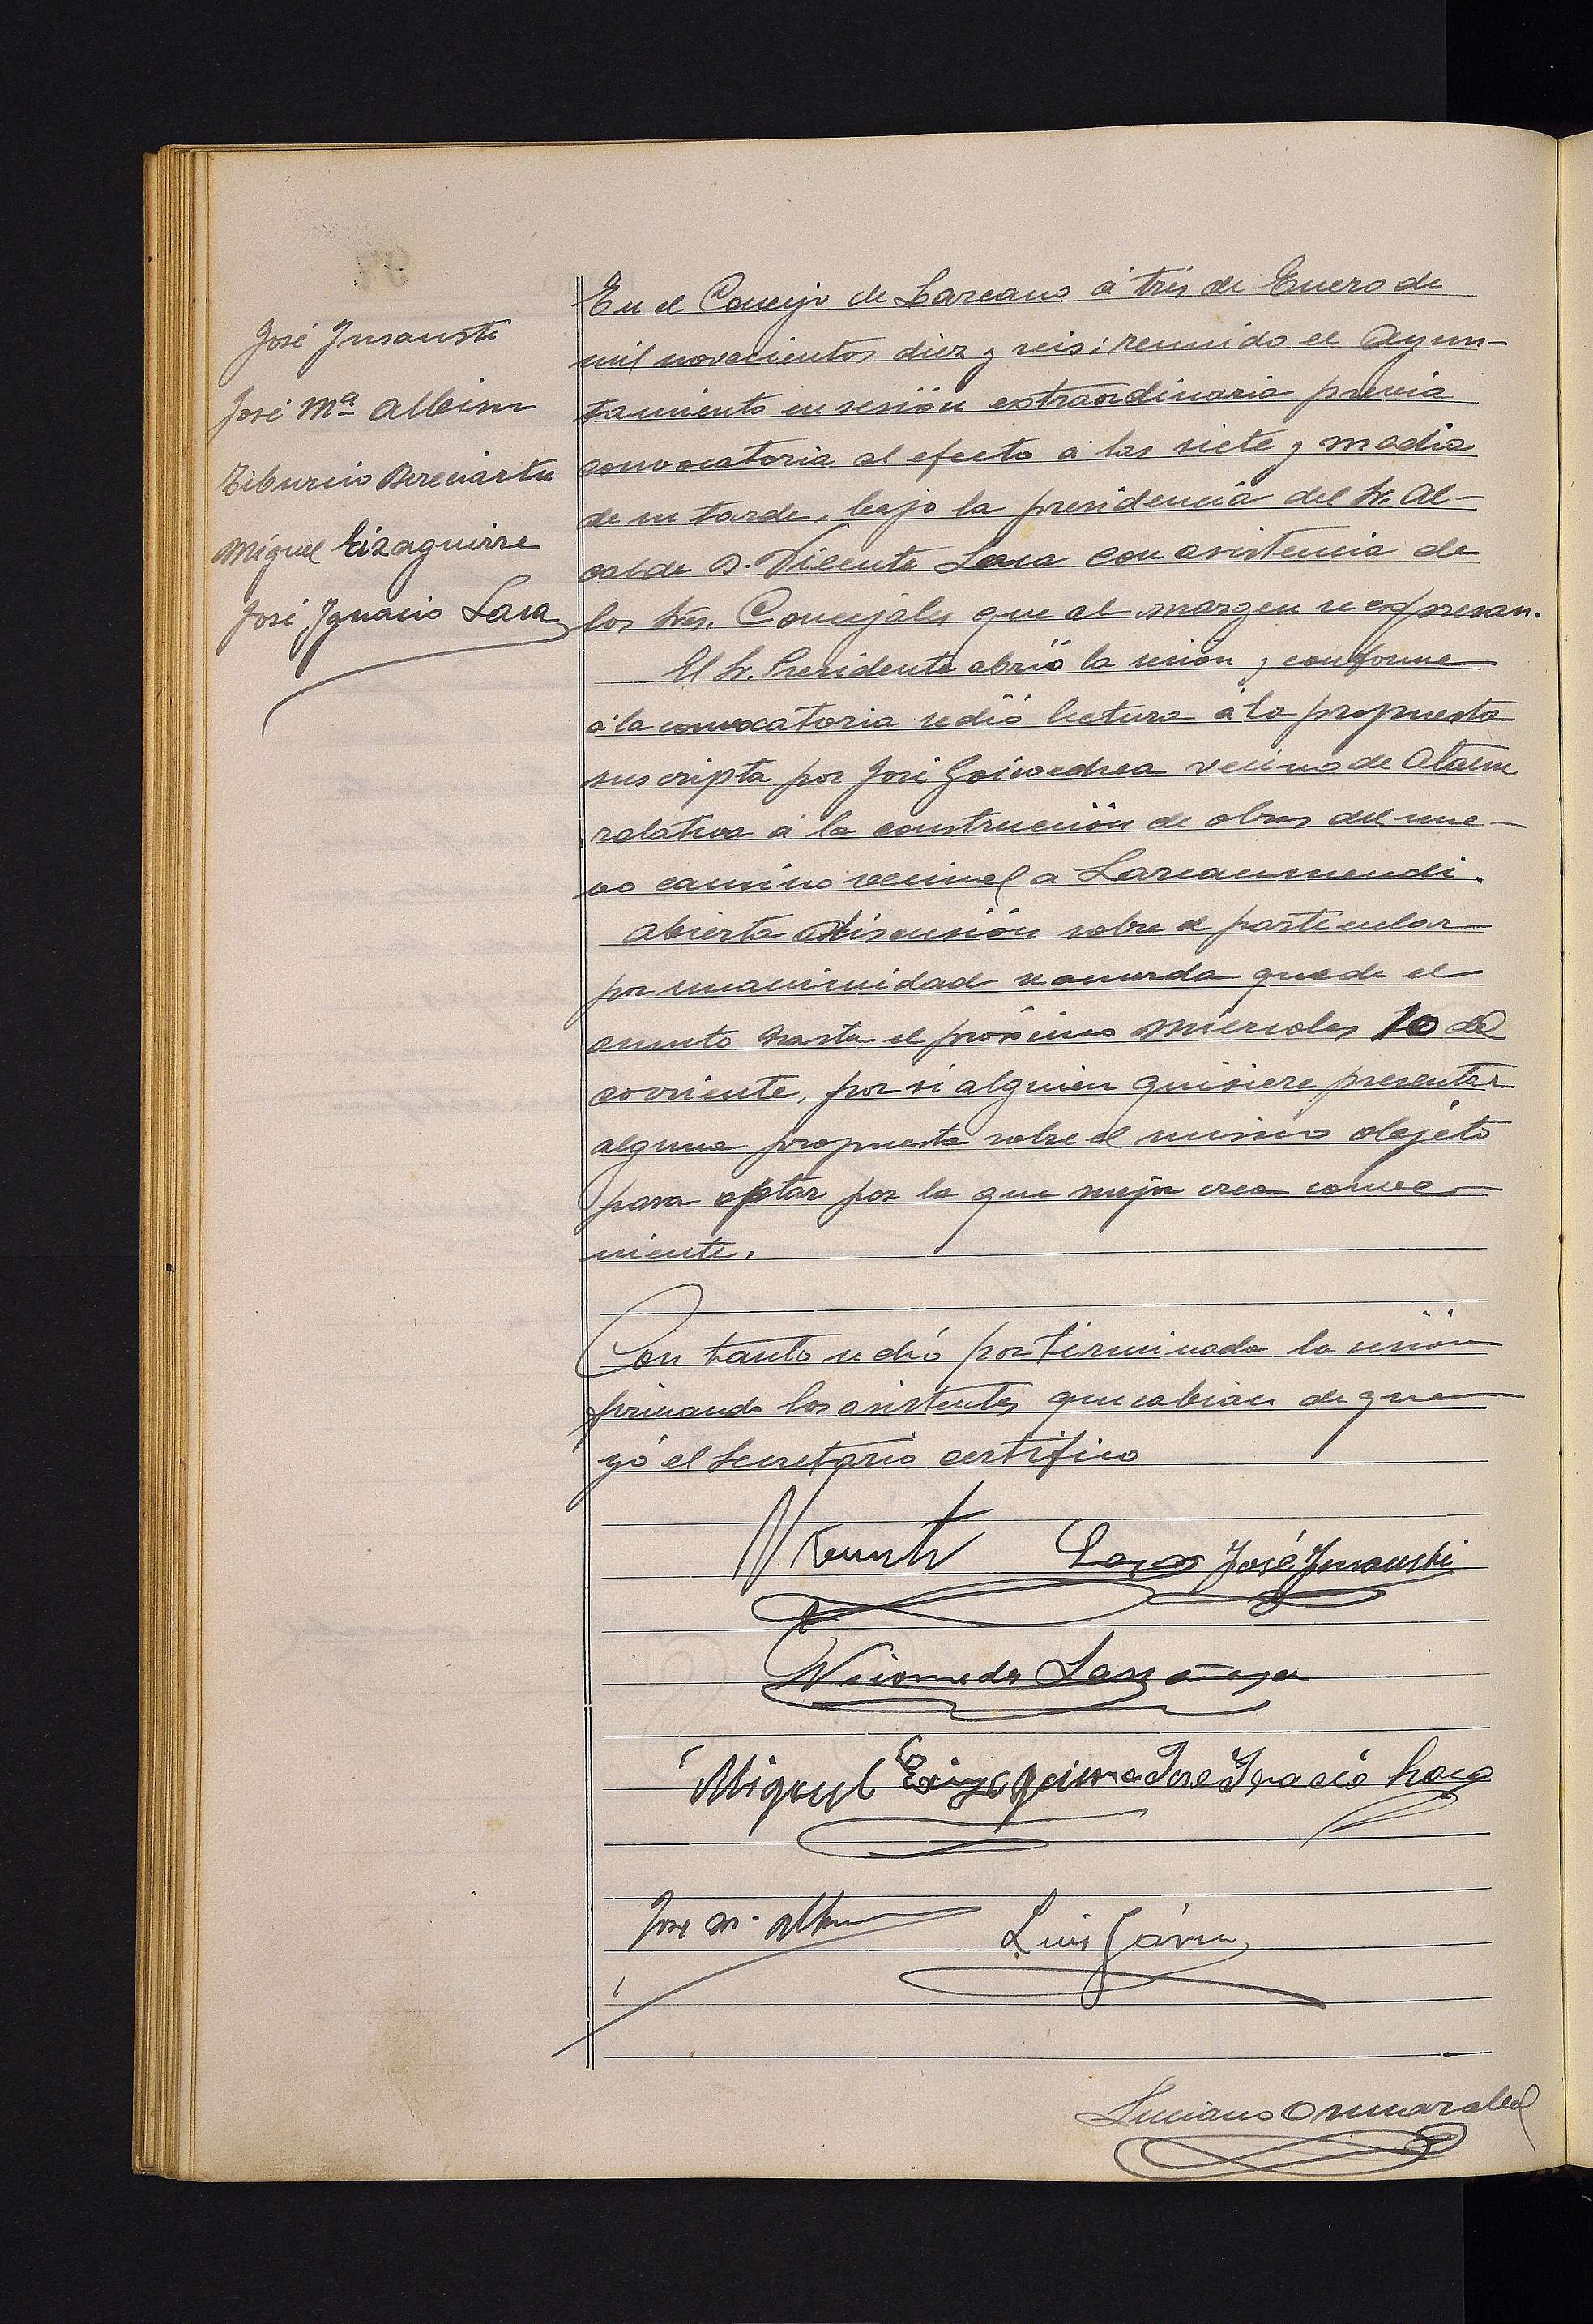 José Insausti
José Mª Albisu
Tiburcio Bereciartu
Miguel Eizaguirre
José Ignacio Lasa
En el Concejo de Lazcano á trés de Enero de
mil novecientos diez y seis; reunido el Ayun-
tamiento en sesión extraordinaria previa
convocatoria al efecto á las siete y media
de su tarde, bajo la presidencia del Sr. Al-
calde D. Vicente Lasa con asistencia de
los Sres. Concejales que al margen se expresan.
El Sr. Presidente abrió la sesión y conforme
á la convocatoria se dió lectura á la propuesta
suscripta por José Goicoechea vecino de Ataun
relativa á la construcción de obras del nue-
vo camino vecinal a Lazcanmendi.
Abierta discusión sobre el particular
por unanimidad se acuerda quede el
asunto hasta el próximo Miércoles 10 del
corriente, por si alguien quisiere presentar
alguna propuesta sobre el mismo objeto
para optar por la que mejor crea conve-
niente.
Con tanto se dió por terminada la sesión
firmando los asistentes que sabian de que
yó el Secretario certifico
Vicente Lasa José Insausti
Nicomedes Lasa
Miguel Eizaguirre José Ignacio Lasa
José M. Albisu
Luis
Luciano